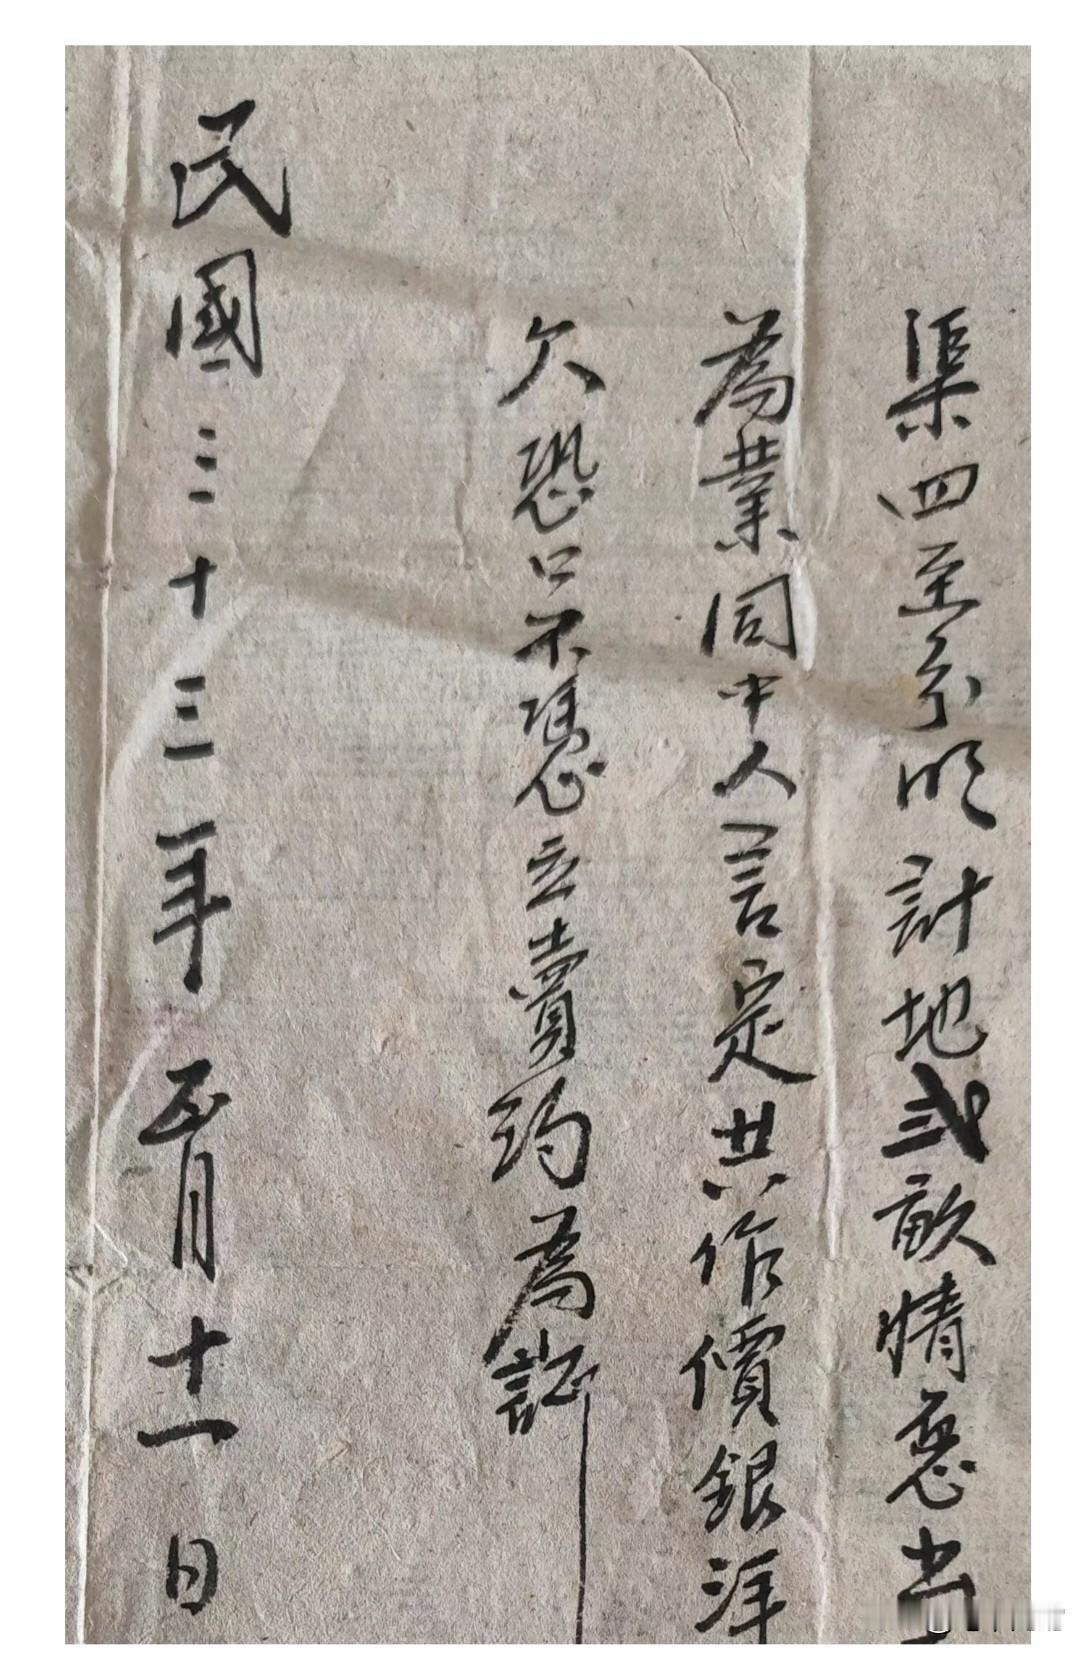 渠四至分明計地弍畝情愿出
為業同中人言定共作價銀洋
欠恐口不憑立賣約為証
民國三十三年正月十一日